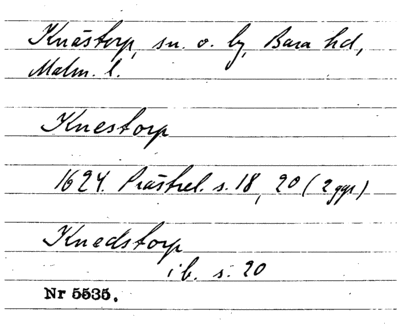 Knästorp, sn. o. by, Bara hd,
Malm. l.
Knestorp
1624. Prästrel. s. 18, 20 (2 ggr)
Knedstorp
ib. s. 20
Nr 5535.